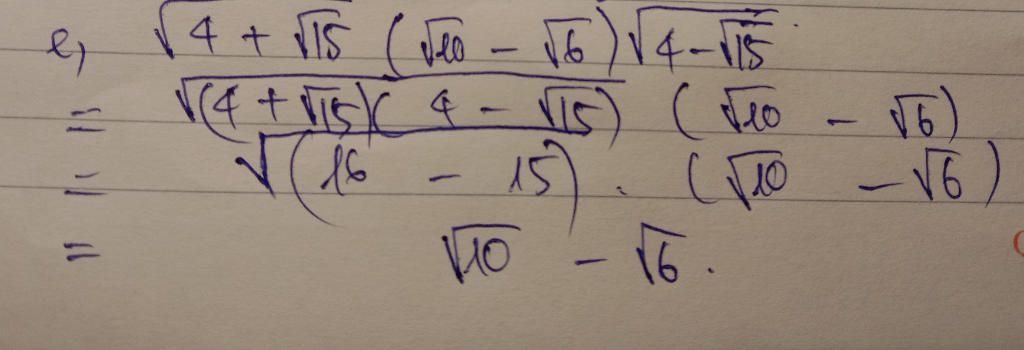 e, √(4 + √15) (√10 − √6) √(4 − √15)
= √((4 + √15)(4 − √15)) (√10 − √6)
= √(16 − 15) . (√10 − √6)
= √10 − √6.